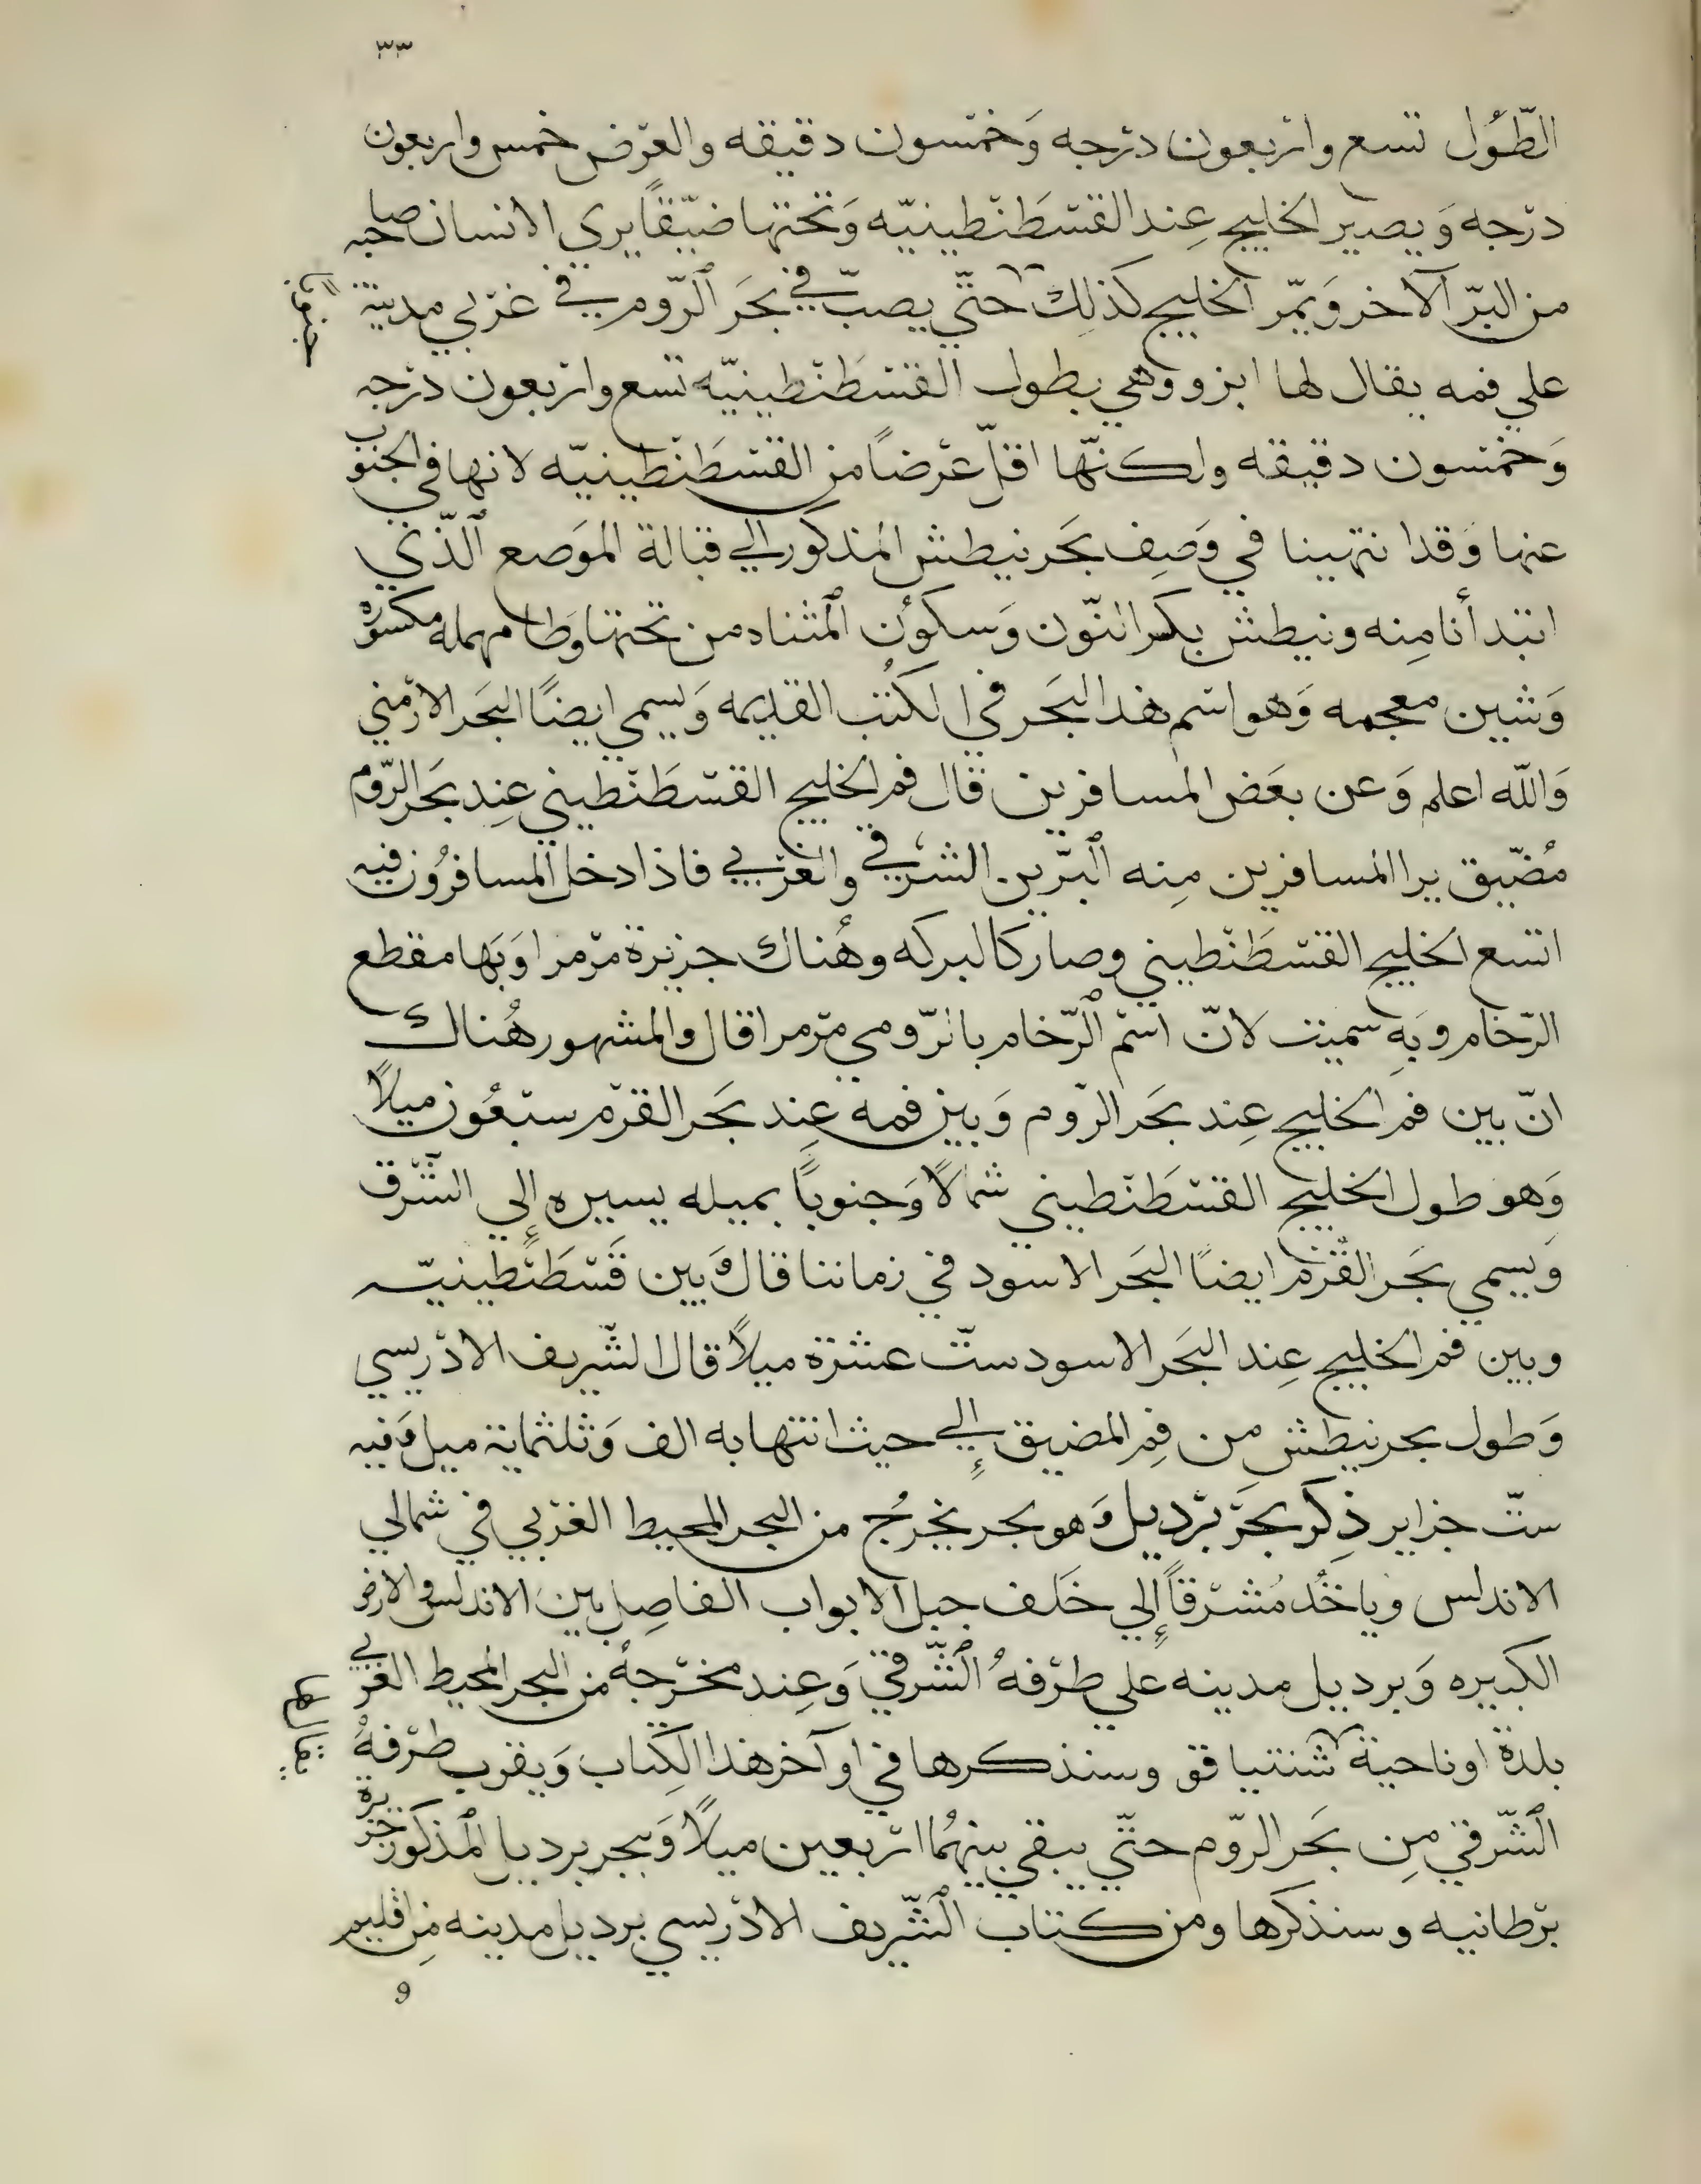 ٣٣
الطّوُل تسع واربعون درجه وَخمسون دقيقه والعرض خمس واربعون
درجه وَيصير الخليج عِند القسطَنطينيّه وَتحتها ضيّقًا يري الانسان صاحبه
من البرّ الآخر وَيمّر الخليج كذلك حتّي يصبّ في بحَر ٱلرّوم في غربي مدينة
علي فمه يقال لها ابزو وهي بطول القسطَنطينيّه تسع واربعون درجه
وَخمسون دقيقه ولكنّها اقلّ عرضاً من القسطَنطينيّه لانها في الجنوب
عنها وَقد انتهينا في وَصِف بحَر نيطش المذكور الي قبالة الموَضع ٱلّذي
ابتدأنا مِنه ونيطش بكسر النّون وَسكوُن ٱلمثناه من تحتها وَطا مهمله مكسوره
وَشين معجمه وَهو اسم هذا البَحر في الكُتب القديمه وَيسمي ايضًا البَحر الارمني
وَالله اعلم وَعن بعَض المسافرين قال فم الخليج القسطَنطيني عِند بحَر الرّوم
مُضّيق يرا المسافرين مِنه ٱلبرّين الشرقي والغربي فاذا دخل المسافروُن فيه
اتسع الخليج القسطَنطيني وصار كالبركه وهُناك جزيرة مرمرا وَبَها مقطع
الرّخام وَبهِ سميت لانّ اسم ٱلرّخام بالرّومي مرمرا قال والمشهور هُناك
انّ بين فم الخليج عِند بحَر الرّوم وَبين فمه عِند بحَر القرم سبعُون ميلاً
وَهو طول الخليج القسطَنطيني شمالاً وَجنوباً بميله يسيره إلي الشّرق
وَيسمي بحَر القُرم ايضًا البَحر الاسود في زماننا قال وَبين قَسطَنطينيّه
وبين فم الخليج عِند البَحر الاسود ستّ عشرة ميلاً قال الشّريف الادريسي
وَطول بحر نيطش من فِم المضيق إلي حيث انتهابه الف وَثلثماية ميل وَفيه
ستّ جزاير ذِكر بحَر برديل وَهو بحر يخرُج من البحر المحيط الغربي في شمالي
الاندلس وَياخُذ مُشرقاً إلي خَلف جبل الابواب الفاصِل بين الاندلس والارض
الكبيره وَبرديل مدينه علي طرفهُ ٱلشّرقيّ وَعِند مخرجهُ من البحر المحيط الغربي
بلدة او ناحية شنتياقو وسنذكرها في اوآخر هذا الكِتاب وَيقرب طرفهُ
ٱلشّرقيّ مِن بحَر الروّم حتّي يبقي بينهُما اربعين ميلاً وَببحر برديل ٱلمذكور جزيرة
برطانيه وسنذكرها ومن كتاب ٱلشّريف الادريسي برديل مدينه مِن اقليم
9